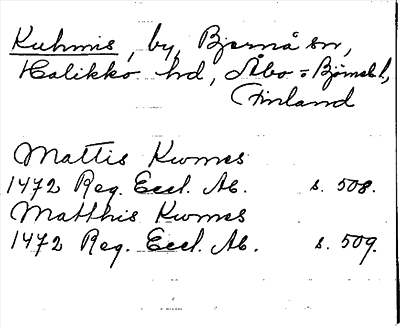 Kuhmis, by, Bjernå sn,
Halikko hd, Åbo = Bjömeb l.,
Finland
Mattis Kwmes
1472 Reg. Eccl. Ab. s. 508.
Matthis Kwmes
1472 Reg. Eccl. Ab. s. 509.